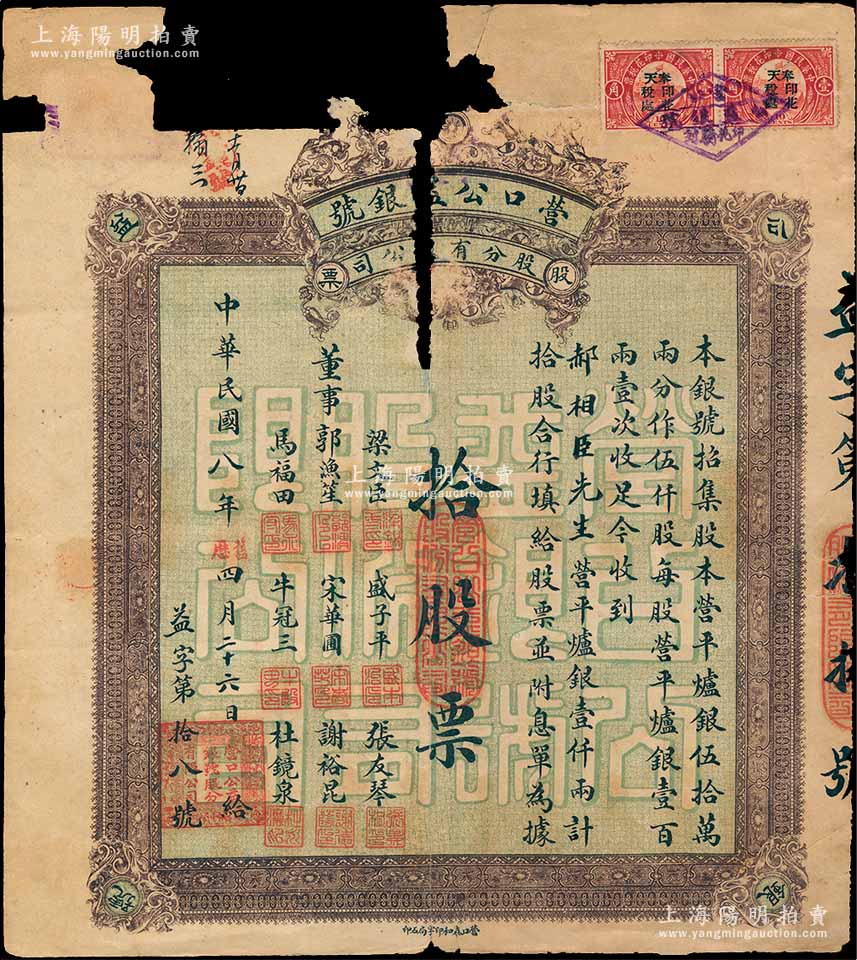 上海陽明拍賣
www.yangmingauction.com
上海陽明拍賣
www.yangmingauction.com
中華民國印花稅票
壹角
奉天印花稅處
營口公益銀號
股分有 公司
股票
本銀號招集股本營平爐銀伍拾萬
兩分作伍仟股每股營平爐銀壹百
兩壹次收足今收到
郝相臣先生營平爐銀壹仟兩計
拾股合行填給股票並附息單為據
拾股票
梁 盛子平 張友琴
董事 郭漁笙 宋華圃 謝裕昆
馬福田 牛冠三 杜鏡泉
中華民國八年舊曆四月二十六日給
益字第拾八號
益字第 拾 號
上海陽明拍賣
www.yangmingauction.com
上海陽明拍賣
www.yangmingauction.com
上海陽明拍賣
www.yangmingauction.com